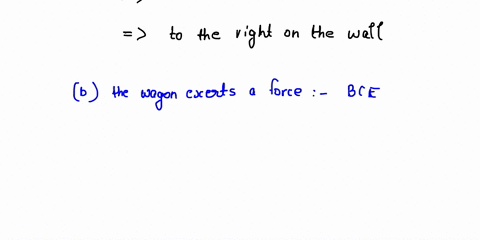 => to the right on the wall
(b) the wagon exerts a force :- BCE